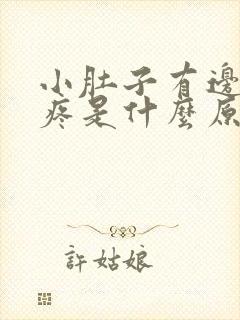 小肚子有邊
疼是什麼原
許姑娘